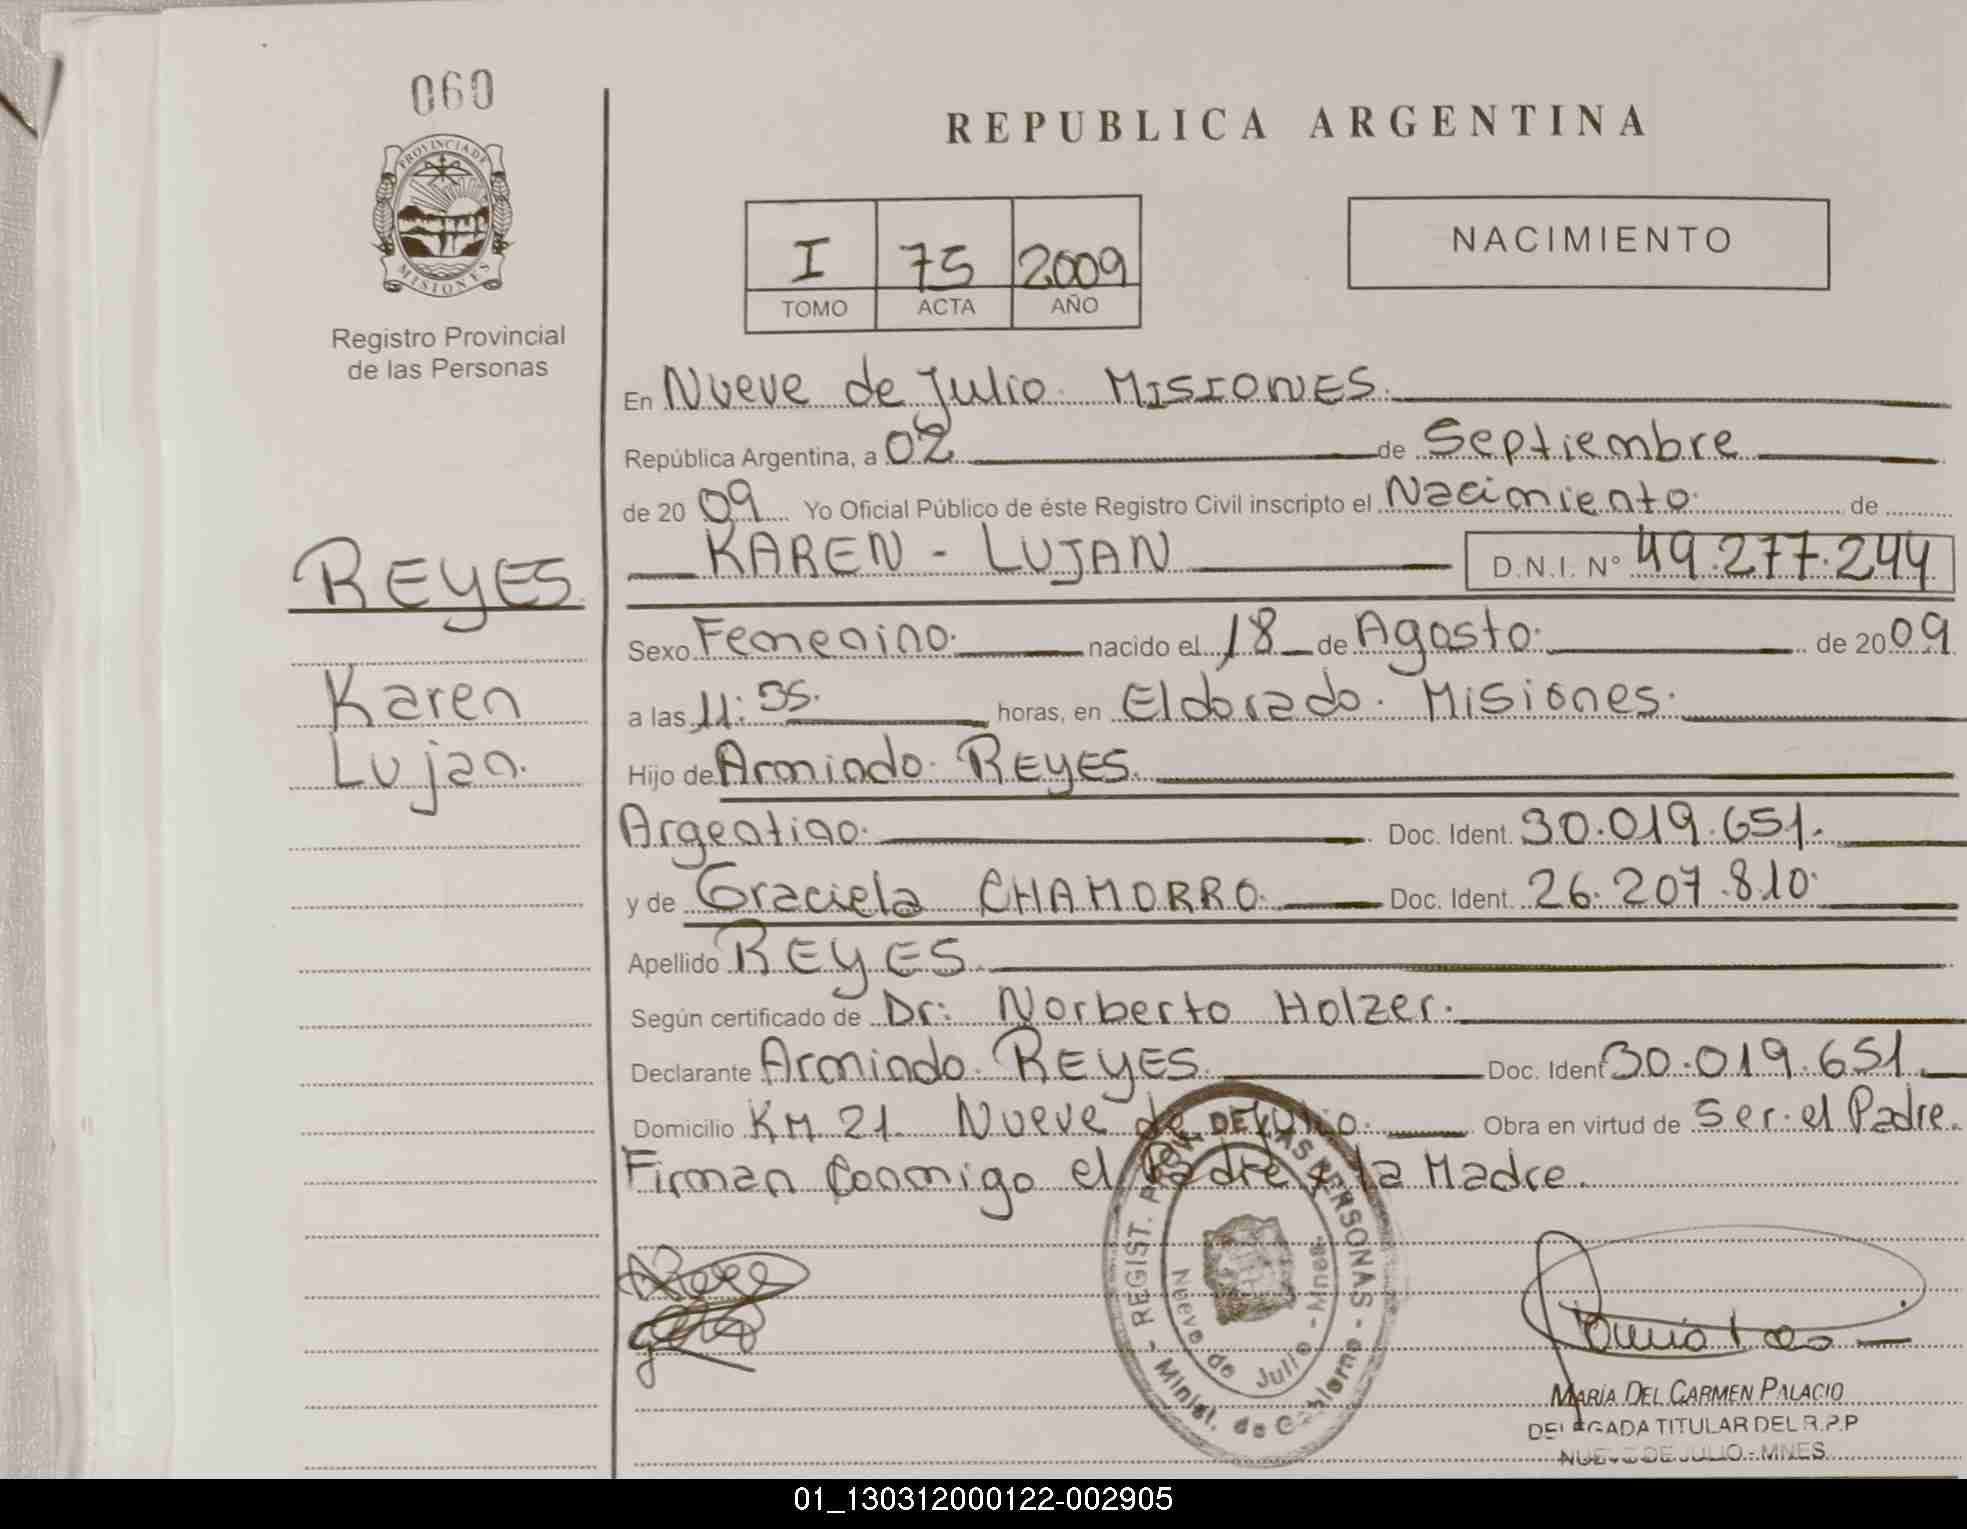 060
PROVINCIA DE
MISIONES
Registro Provincial
de las Personas
REYES
Karen
Lujan.
REPUBLICA ARGENTINA
I 75 2009
TOMO ACTA AÑO
NACIMIENTO
En Nueve de Julio. MISIONES.
República Argentina, a 02 de Septiembre
de 20 09 Yo Oficial Público de éste Registro Civil inscripto el Nacimiento. de
KAREN - LUJAN D.N.I. Nº 49.277.244
Sexo Femenino. nacido el 18 de Agosto. de 20 09.
a las 11:35. horas, en Eldorado. Misiones.
Hijo de Armindo. REYES.
Argentino. Doc. Ident. 30.019.651.
y de Graciela CHAMORRO. Doc. Ident. 26.207.810.
Apellido REYES.
Según certificado de Dr: Norberto Holzer.
Declarante Armindo. REYES. Doc. Ident 30.019.651.
Domicilio KM 21. Nueve de Julio. Obra en virtud de Ser el Padre.
Firman Conmigo el Padre y la Madre.
- REGIST. PROV. DE LAS PERSONAS -
Minist. de Gobierno
Nueve de Julio - Mnes.
MARÍA DEL CARMEN PALACIO
DELEGADA TITULAR DEL R.P.P
NUEVE DE JULIO - MNES.
01_130312000122-002905